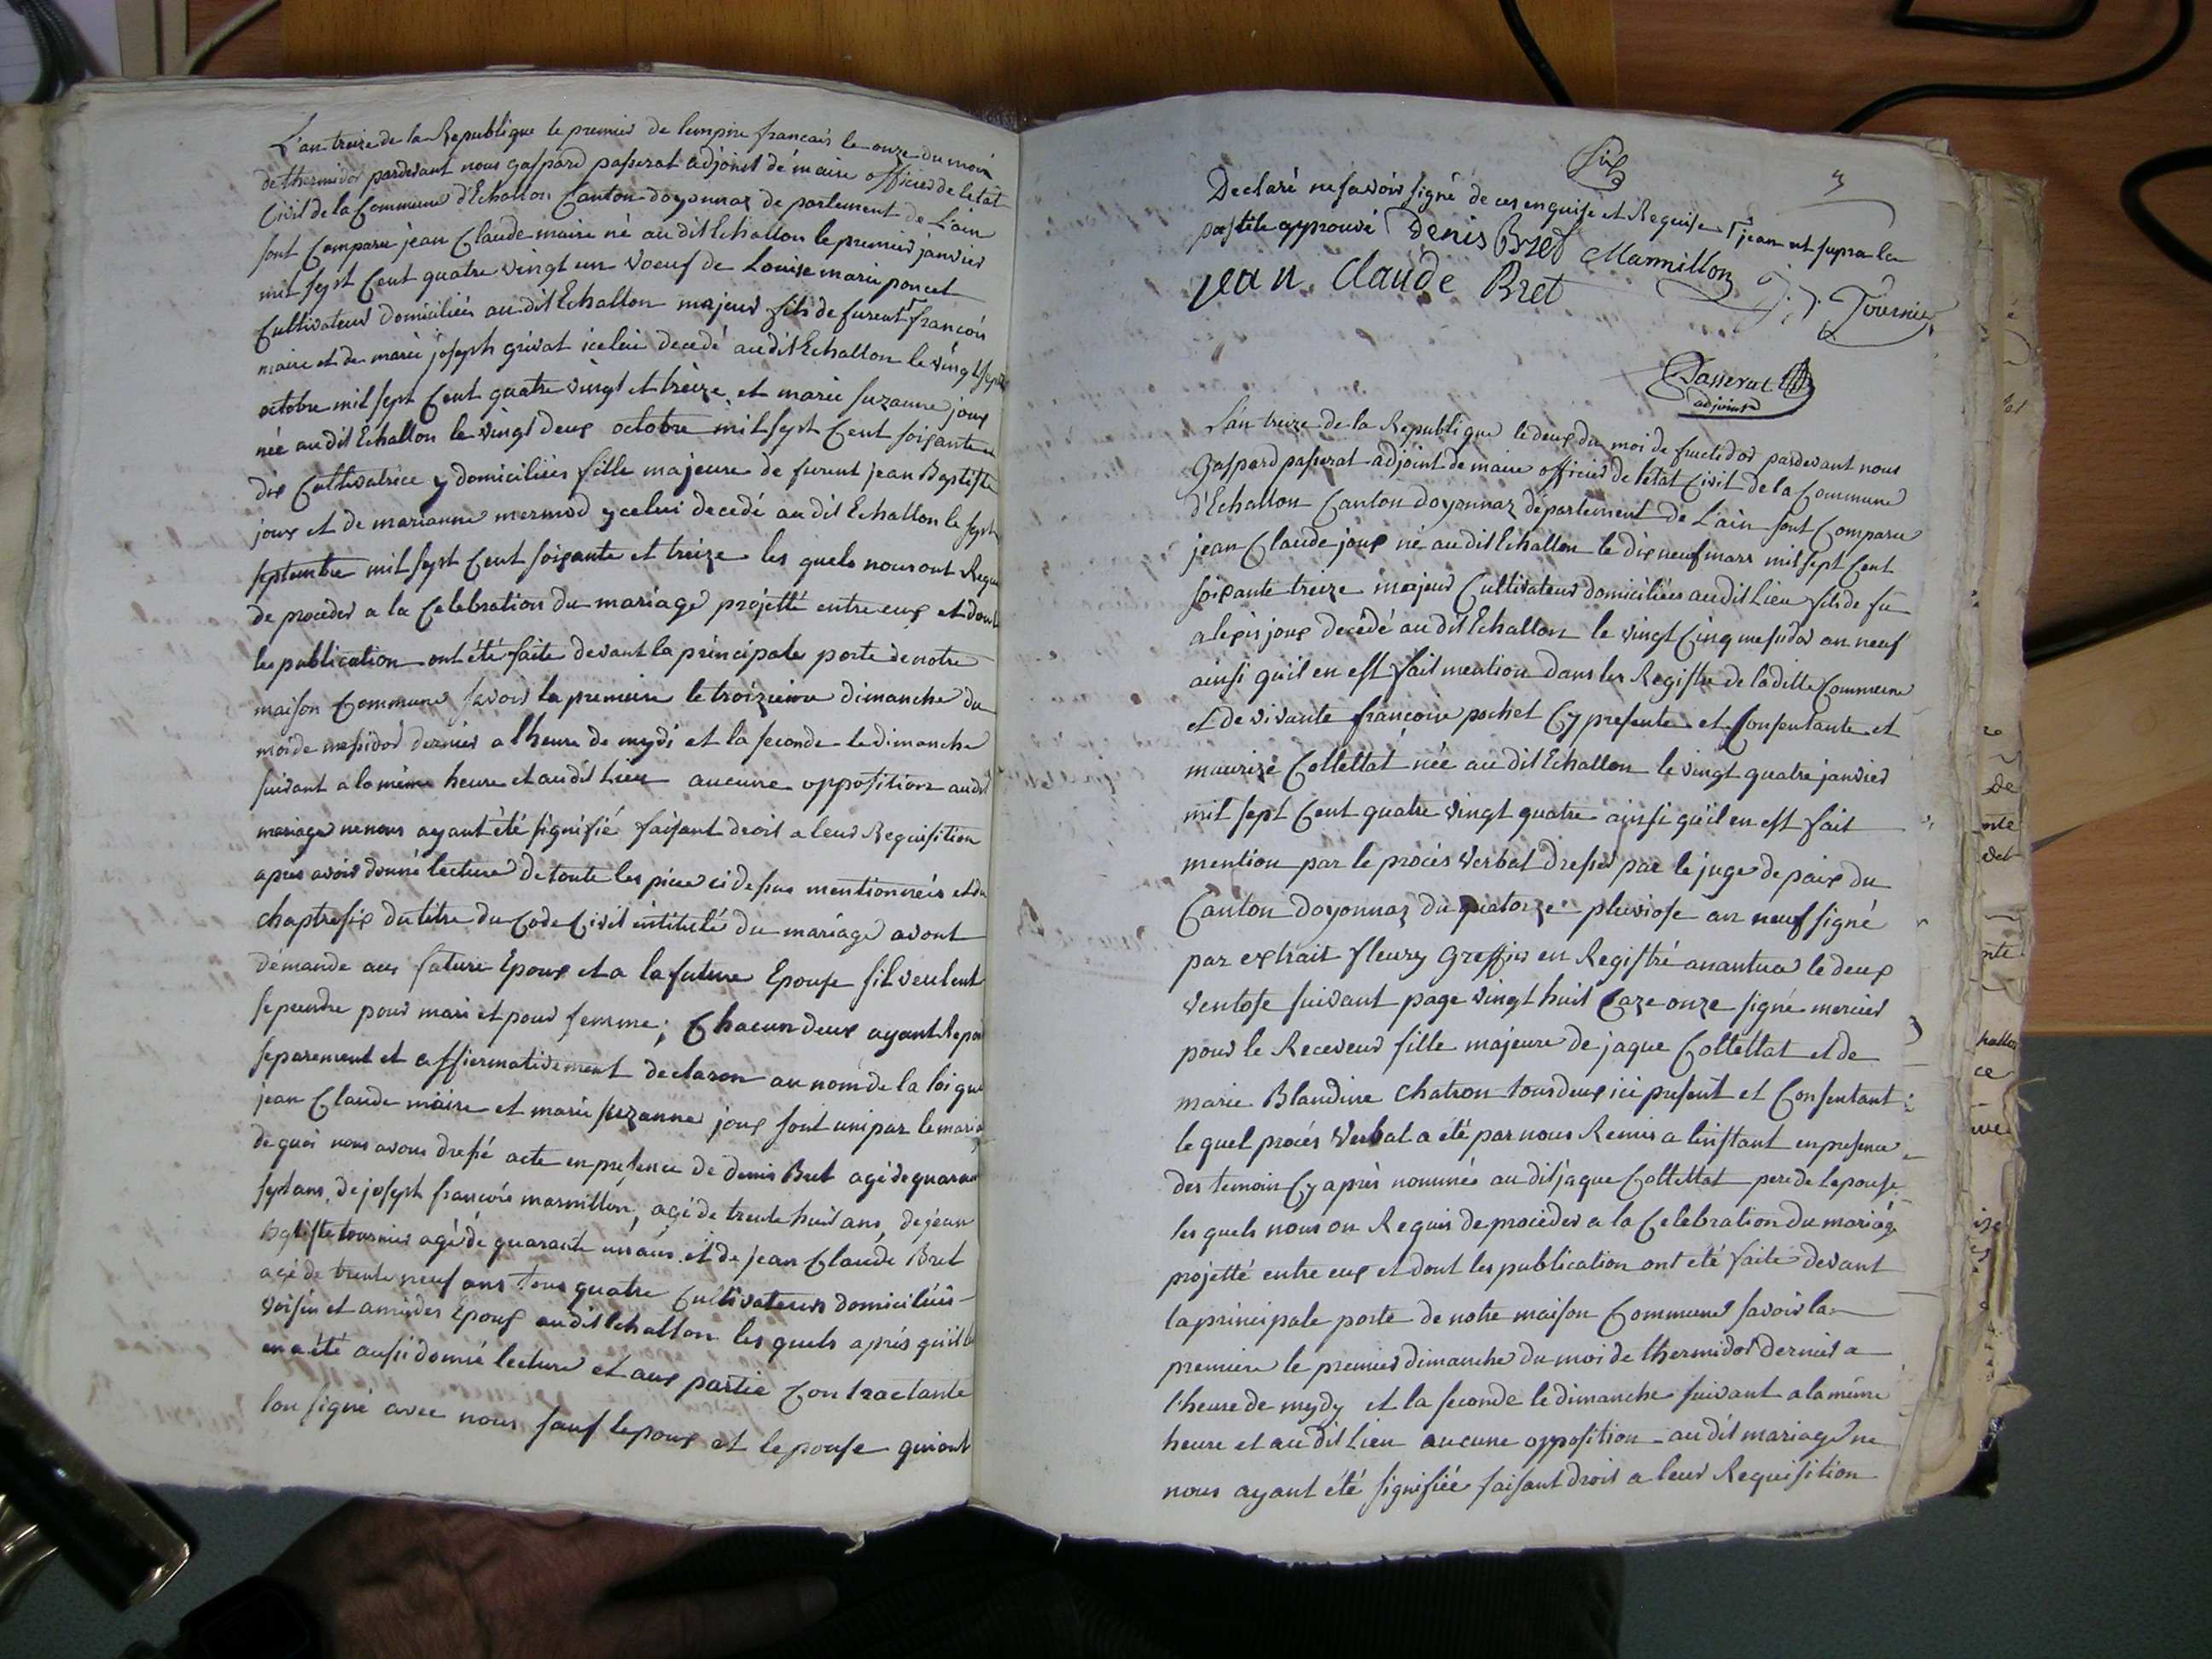 L'an treize de la Republique le premier de lempire francais le onze du mois
de thermidor pardevant nous gaspard passerat adjoint de maire officier de letat
Civil de la Commune d'Echallon Canton doyonnaz departement de L'ain
sont Comparu jean Claude maire né au dit Echallon le premier janvier
mil sept Cent quatre vingt un voeuf de Louise marie poncet
Cultivateur domiciliés au dit Echallon majeur fils de furent francois
maire et de marie joseph grivat icelui decedé au dit Echallon le vingt sept
octobre mil sept Cent quatre vingt et treize, et marie suzanne joux
née au dit Echallon le vingt deux octobre mil sept Cent soixante et
dix Cultivatrice y domiciliées fille majeure de furent jean Baptiste
joux et de marianne mermod ycelui decedé au dit Echallon le sept
septembre mil sept Cent soixante et treize les quels nous ont Requis
de proceder a la Celebration du mariage projetté entre eux et dont
les publication ont été faite devant la principale porte de notre
maison Commune savoir la premiere le troizieme dimanche du
moi de messidor dernier a lheure de mydi et la seconde le dimanche
suivant a la même heure et au dit Lieu aucune opposition au dit
mariage ne nous ayant été signifié faisant droit a leur Requisition
après avoir donné lecture de toute les piece ci dessus mentionnées et du
chaptre six du titre du Code Civil intitulé du mariage avont
demande aux future Epoux et a la future Epouse sil veulent
se prendre pour mari et pour femme; Chacun deux ayant Repon
separement et affiermativement declaron au nom de la loi que
jean Claude maire et marie suzanne joux sont uni par le maria
de quoi nous avons dressé acte en presence de denis Bret agé de quaran
sept ans, de joseph francois marmillon, agé de trente huit ans, de jean
Baptiste tournier agé de quarante un ans et de jean Claude Bret
agé de trente neuf ans tous quatre Cultivateurs domiciliés
voisin et ami des Epoux au dit Echallon les quels après qu'il l
en a été aussi donné lecture et aux partie Contractante
lon signé avec nous sauf lepoux et lepouse qui ont
six
3
Declaré ne savoir signé de ces enquise et Requise jean ut supra la
postile approuvé Denis Bret Marmillon
jean Claude Bret J. B. Tournier
Passerat
adjoint
L'an treize de la Republique le deux du moi de fructidor pardevant nous
Gaspard passerat adjoint de maire officier de letat Civil de la Commune
d'Echallon Canton doyonnaz département de L'ain sont Comparu
jean Claude joux né au dit Echallon le dix neuf mars mil sept Cent
soixante treize majeur Cultivateur domiciliées au dit Lieu fils de fu
alexis joux decédé au dit Echallon le vingt Cinq messidor an neuf
ainsi qu'il en est fait mention dans les Registre de la ditte Commune
et de vivante francoise pochet Cy presente et Consentante et
maurize Collettat née au dit Echallon le vingt quatre janvier
mil sept Cent quatre vingt quatre ainsi qu'il en est fait
mention par le procès verbal dressé par le juge de paix du
Canton doyonnaz du quatorze pluviose an neuf signé
par extrait fleury Greffier en Registré anantua le deux
ventose suivant page vingt huit Caze onze signé mercier
pour le Receveur fille majeure de jaque Collettat et de
marie Blandine Chatron tous deux ici present et Consentant
le quel procès verbal a été par nous Remis a linstant en presence
des temoin Cy après nommés au dit jaque Collettat pere de lepouse
les quels nous on Requis de proceder a la Celebration du mariag
projetté entre eux et dont les publication ont eté faite devant
la principale porte de notre maison Commune savoir la
premiere le premier dimanche du moi de thermidor dernier a
l'heure de mydy et la seconde le dimanche suivant a la même
heure et au dit Lieu aucune opposition au dit mariage ne
nous ayant été signifiée faisant droit a leur Requisition